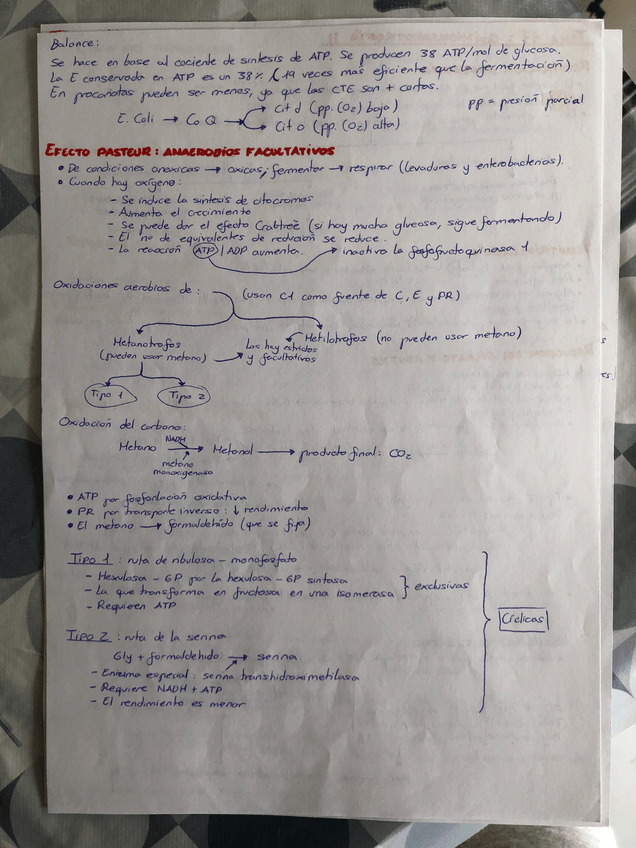 Balance:
Se hace en base al cociente de síntesis de ATP. Se producen 38 ATP/mol de glucosa.
La E conservada en ATP es un 38% (19 veces más eficiente que la fermentación)
En procariotas pueden ser menos, ya que las CTE son + cortas.
E. Coli → Co Q → Cit d (pp. (O₂) baja)
Cit o (pp. (O₂) alta)
pp = presión parcial
EFECTO PASTEUR: ANAEROBIOS FACULTATIVOS
• De condiciones anóxicas → óxicas; fermentar → respirar (levaduras y enterobacterias).
• Cuando hay oxígeno:
- Se induce la síntesis de citocromos
- Aumenta el crecimiento
- Se puede dar el efecto Crabtree (si hay mucha glucosa, sigue fermentando)
- El no de equivalentes de reducción se reduce.
- La reacción ATP/ADP aumenta. → inactiva la fosfofructoquinasa 1
Oxidaciones aerobias de: (usan C1 como fuente de C, E y PR)
Metanotrofos (pueden usar metano) → Los hay estrictos y facultativos ← Metilotrofos (no pueden usar metano)
Tipo 1 Tipo 2
Oxidación del carbono:
Metano → Metanol → producto final: CO₂
NADH
metano monoxigenasa
• ATP por fosforilación oxidativa
• PR por transporte inverso: ↓ rendimiento
• El metano → formaldehído (que se fija)
TIPO 1: ruta de ribulosa - monofosfato
- Hexulosa - 6P por la hexulosa - 6P sintasa
- La que transforma en fructosa en una isomerasa } exclusivas
- Requieren ATP
TIPO 2: ruta de la serina
Gly + formaldehído → serina
- Enzima especial: serina transhidroximetilasa
- Requiere NADH + ATP
- El rendimiento es menor
Cíclicas